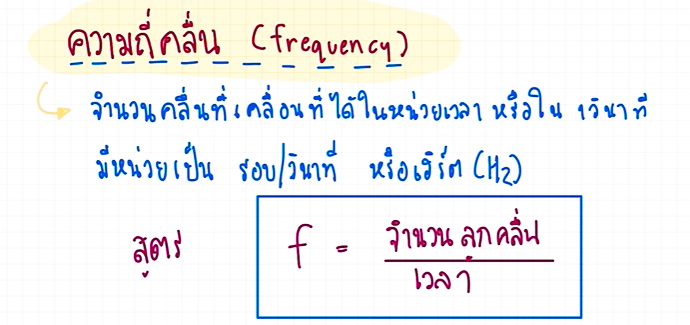 ความถี่คลื่น (frequency)
จำนวนคลื่นที่เคลื่อนที่ได้ในหน่วยเวลา หรือใน 1 วินาที
มีหน่วยเป็น รอบ/วินาที หรือเฮิร์ต (Hz)
สูตร f = จำนวนลูกคลื่น
เวลา